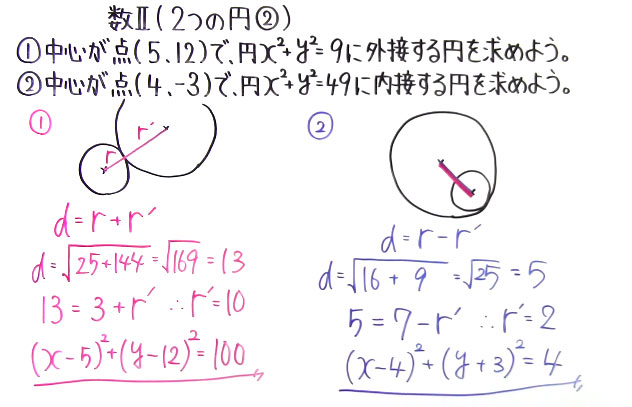 数Ⅱ(2つの円②)
①中心が点(5、12)で、円x²+y²=9に外接する円を求めよう。
②中心が点(4、-3)で、円x²+y²=49に内接する円を求めよう。
①
r'
r
d=r+r'
d=√25+144=√169=13
13=3+r' ∴r'=10
(x-5)²+(y-12)²=100
②
d=r-r'
d=√16+9=√25=5
5=7-r' ∴r'=2
(x-4)²+(y+3)²=4